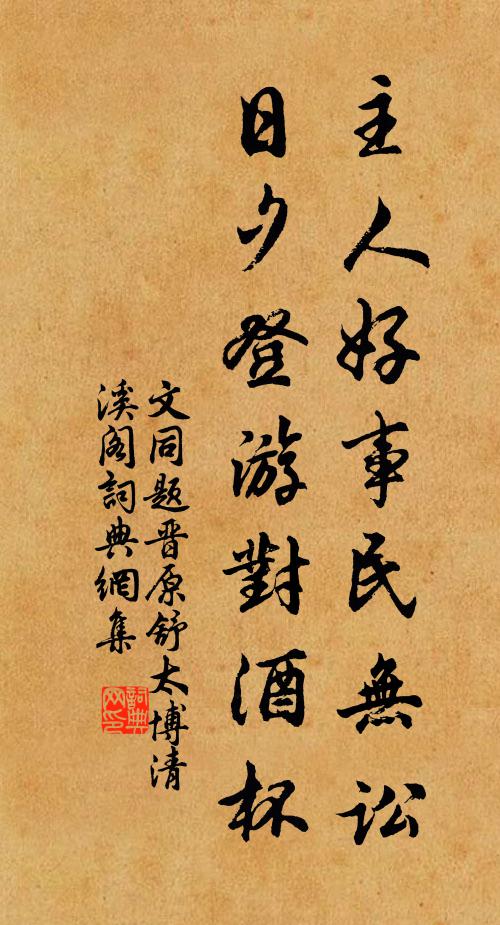 主人好事民無訟
日夕登游對酒杯
文同題晋原舒太博清
溪阁詞典網集
詞典
网印